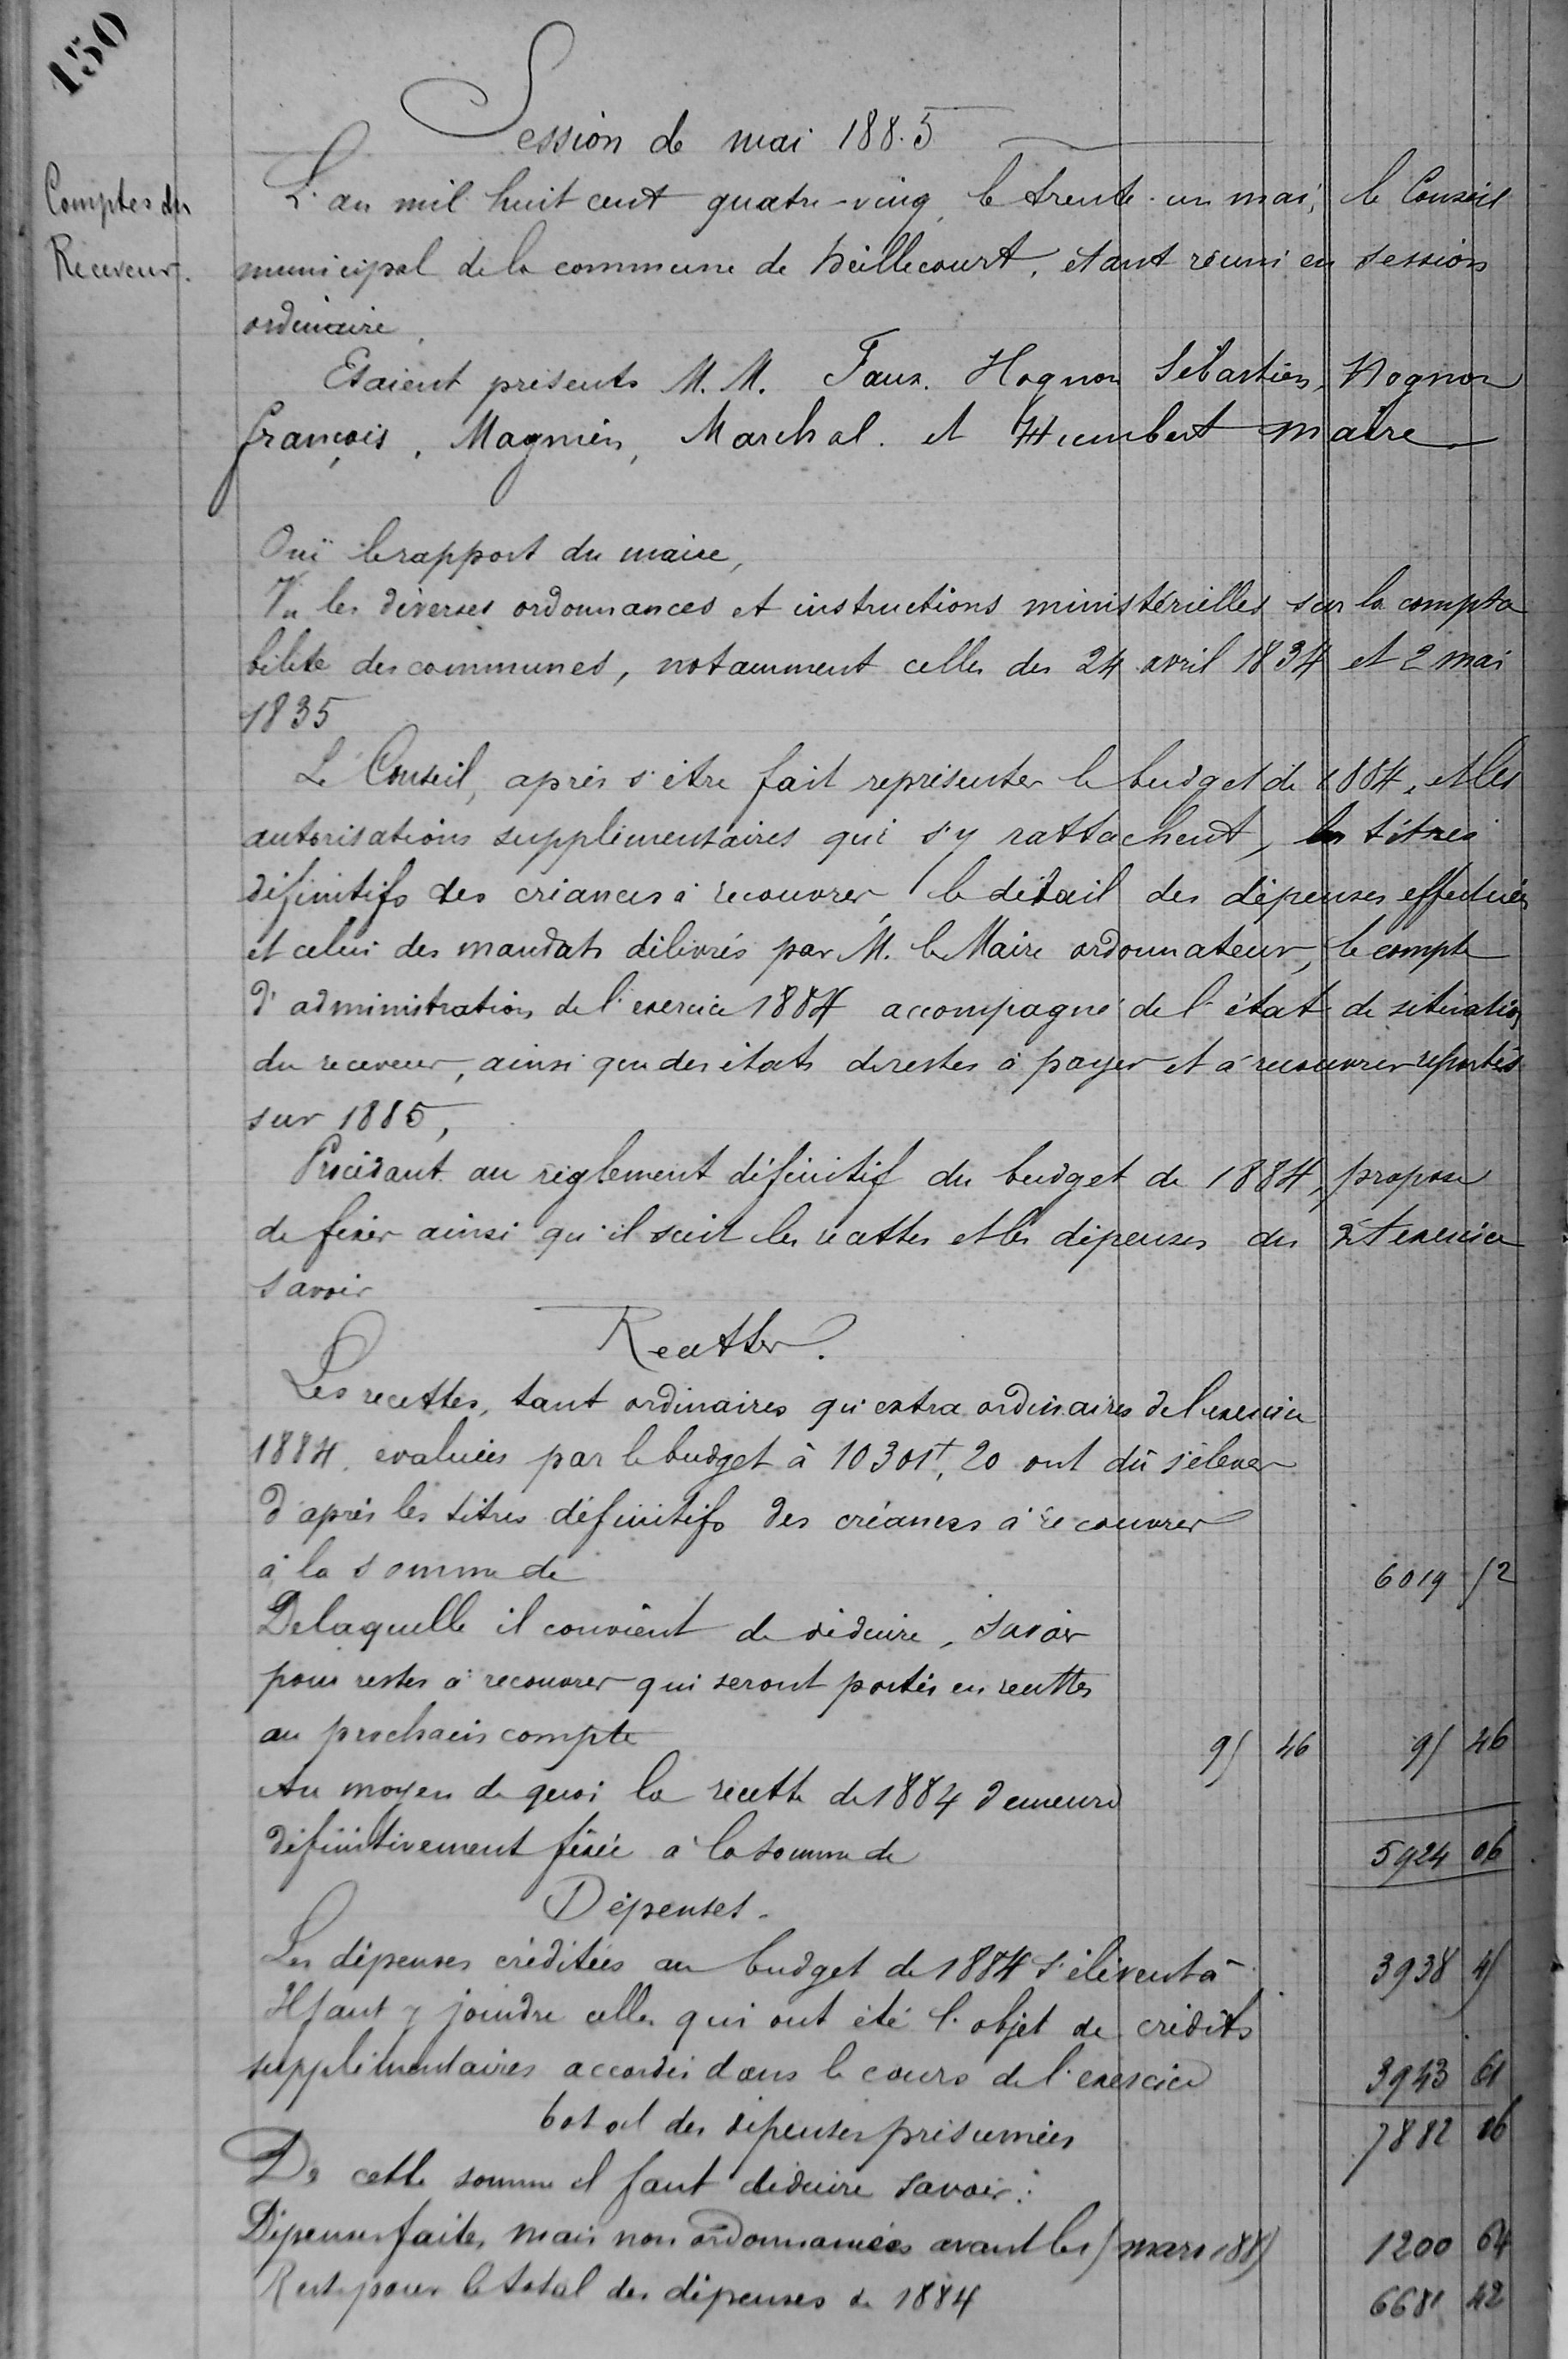 150
Session de mai 188.5
Comptes du
Receveur.
L'an mil huit cent quatre-vinq, le trente-un mai, le Conseil
municipal de la commune de Heillecourt, etant réuni en session
ordinaire,
Etaient présents M.M. Faux. Hognon Sébastien, Hognon
françois, Magnien, Marchal. et Humbert maire
Ouï le rapport du maire,
Vu les diverses ordonnances et instructions ministérielles sur la compta
bilité des communes, notamment celles des 24 avril 1834 et 2 mai
1835
Le Conseil, après s'être fait représenter le budget de 1884, et les
autorisations supplémentaires qui s'y rattachent, les titres
définitifs des créances à recouvrer, le détail des dépenses effectuées
et celui des mandats délivrés par M. le Maire ordonnateur, le compte
d'administration de l'exercice 1884 accompagné de l'état de situation
du receveur, ainsi que des états de restes à payer et à recouvrer reportés
sur 1885,
Procédant au règlement définitif du budget de 1884, propose
de fixer ainsi qu'il suit les recettes et les dépenses du dt exercice
savoir
Recettes.
Les recettes, tant ordinaires qu'extra ordinaires de l'exercice
1884, evaluées par le budget à 10301f,20 ont dû s'élever
d'après les titres définitifs des créances à recouvrer
à la somme de 6019 52
De laquelle il convient de déduire, savoir
pour restes à recouvrer qui seront portés en recettes
au prochain compte 95 46 95 46
Au moyen de quoi la recette de 1884 demeure
définitivement fixée à la somme de 5924 06
Dépenses.
Les dépenses créditées au budget de 1884 s'élèvent à 3938 45
Il faut y joindre celles qui ont été l'objet de crédits
supplémentaires accordés dans le cours de l'exercice 3943 61
total des dépenses présumées 7882 06
De cette somme il faut déduire savoir:
Dépenses faites, mais non ordonnancées avant le 15 mars 1885 1200 64
Reste pour le total des dépenses de 1884 6681 42